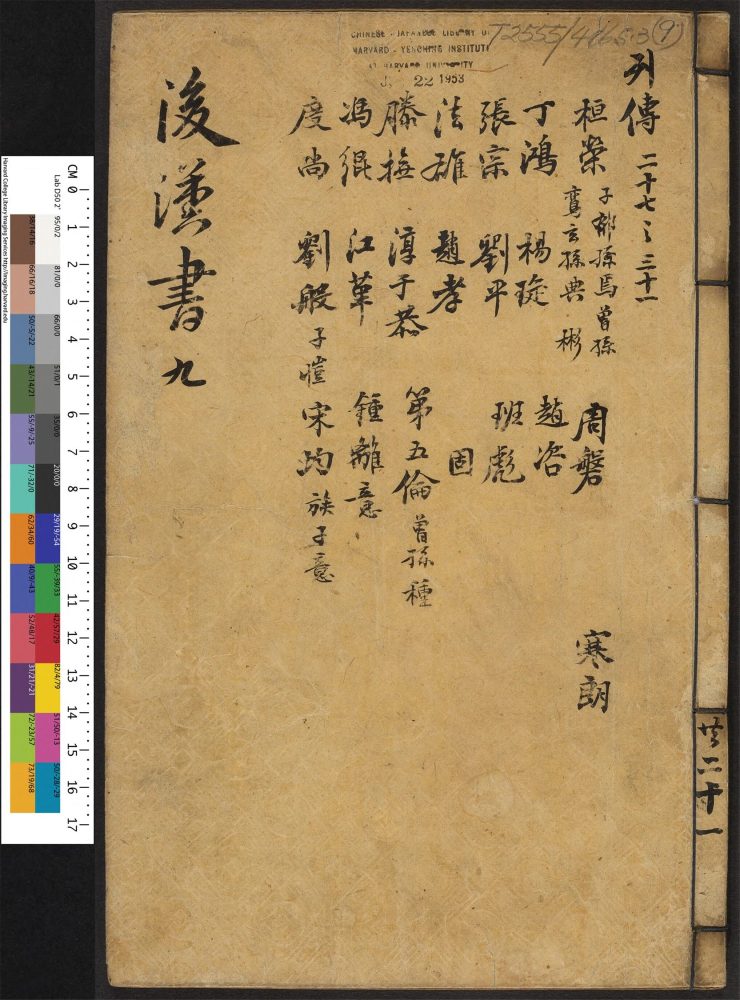 CHINESE - JAPANESE LIBRARY OF
HARVARD - YENCHING INSTITUTE
AT HARVARD UNIVERSITY
22 1953
(9)
列傳 二十七之三十一
桓榮 子郁孫焉曾孫
鸞玄孫典 彬
丁鴻
張宗
法雄
滕撫
馮緄
度尚
楊琁
劉平
趙孝
淳于恭
江革
劉般 子愷
周磐
趙咨
班彪
固
第五倫 曾孫種
鍾離意
宋均 族子意
寒朗
後漢書 九
共二十一
CM 0 1 2 3 4 5 6 7 8 9 10 11 12 13 14 15 16 17
Harvard College Library Imaging Services